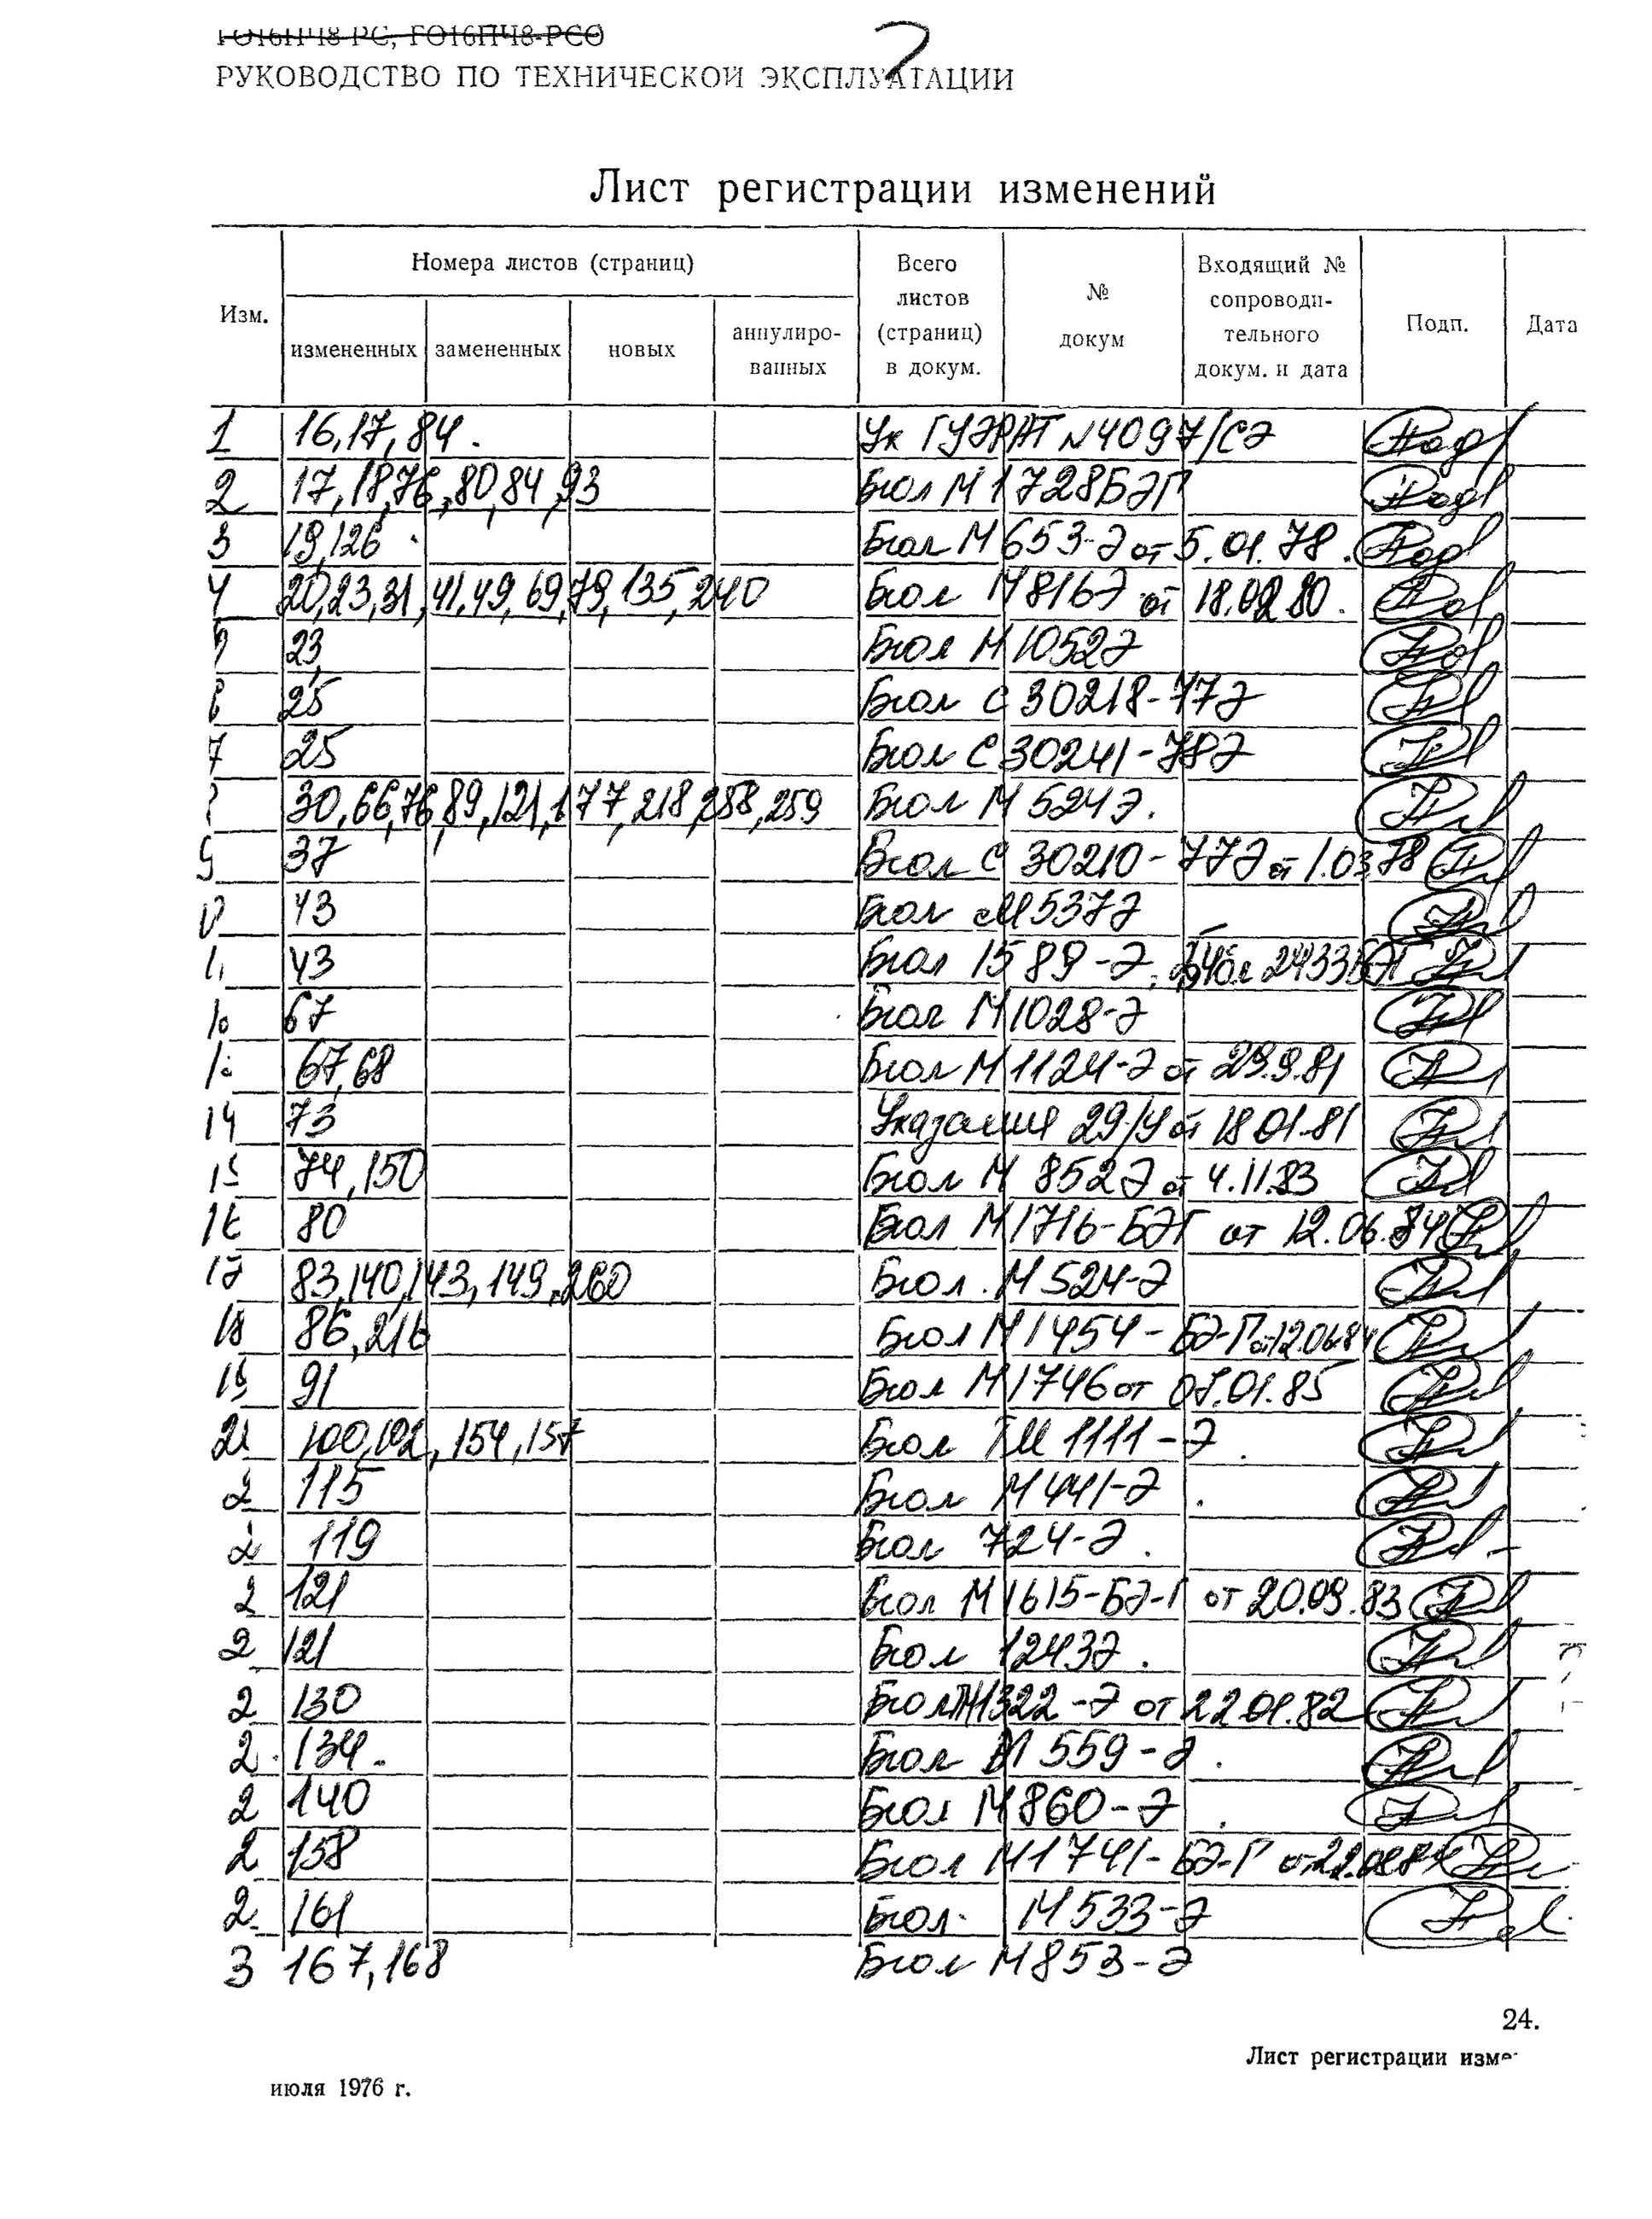 ГО16ПЧ8-РС, ГО16ПЧ8-РСО
2
РУКОВОДСТВО ПО ТЕХНИЧЕСКОЙ ЭКСПЛУАТАЦИИ
Лист регистрации изменений
Изм. Номера листов (страниц) Всего листов (страниц) в докум. № докум Входящий № сопроводительного докум. и дата Подп. Дата
измененных замененных новых аннулированных
1 16,17,84. Ук ГУЭРАТ №4097/СЭ
2 17,18,76,80,84,93 Бюл М1728БЭГ
3 19,126 Бюл М653-Э от 5.01.78.
4 20,23,31,41,49,69,79,135,240 Бюл М816Э от 18.02.80.
23 Бюл М1052Э
25 Бюл С 30218-77Э
7 25 Бюл С30241-78Э
30,66,76,89,121,177,218,258,259 Бюл М524Э.
9 37 Бюл С 30210-77Э от 1.03.78
43 Бюл М537Э
43 Бюл 1589-Э,
67 Бюл М1028-Э
67,68 Бюл М1124-Э от 29.9.81
14 73 Указания 29/У от 18.01.81
15 74,150 Бюл М 852Э от 4.11.83
16 80 Бюл М1716-БЭГ от 12.06.84
17 83,140,143,149,260 Бюл. М524-Э
18 86,216 Бюл М1454-БЭ-Г от 12.06.84
19 91 Бюл М1746 от 07.01.85
100,102,154,157 Бюл ТМ 1111-Э
2 115 Бюл М441-Э
2 119 Бюл 724-Э.
2 121 Бюл М1615-БЭ-Г от 20.09.83
2 121 Бюл 1243Э.
2 130 Бюл М1322-Э от 22.01.82
2 134. Бюл М559-Э
2 140 Бюл М860-Э
2 158 Бюл М1741-БЭ-Г от
2 161 Бюл. М533-Э
3 167,168 Бюл М853-Э
24.
Лист регистрации изме
июля 1976 г.